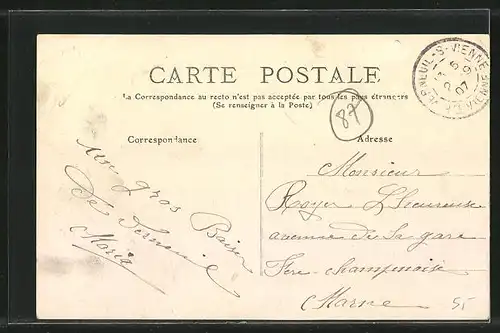 CARTE POSTALE
La Correspondance au recto n'est pas acceptée par tous les pays étrangers
(Se renseigner à la Poste)
Correspondance
Adresse
87
Une gros Baiser
de Verneuil
Maria
Monsieur
Royer Lheureux
avenue de la gare
Fère-champenoise
Marne
VERNEUIL-S-VIENNE